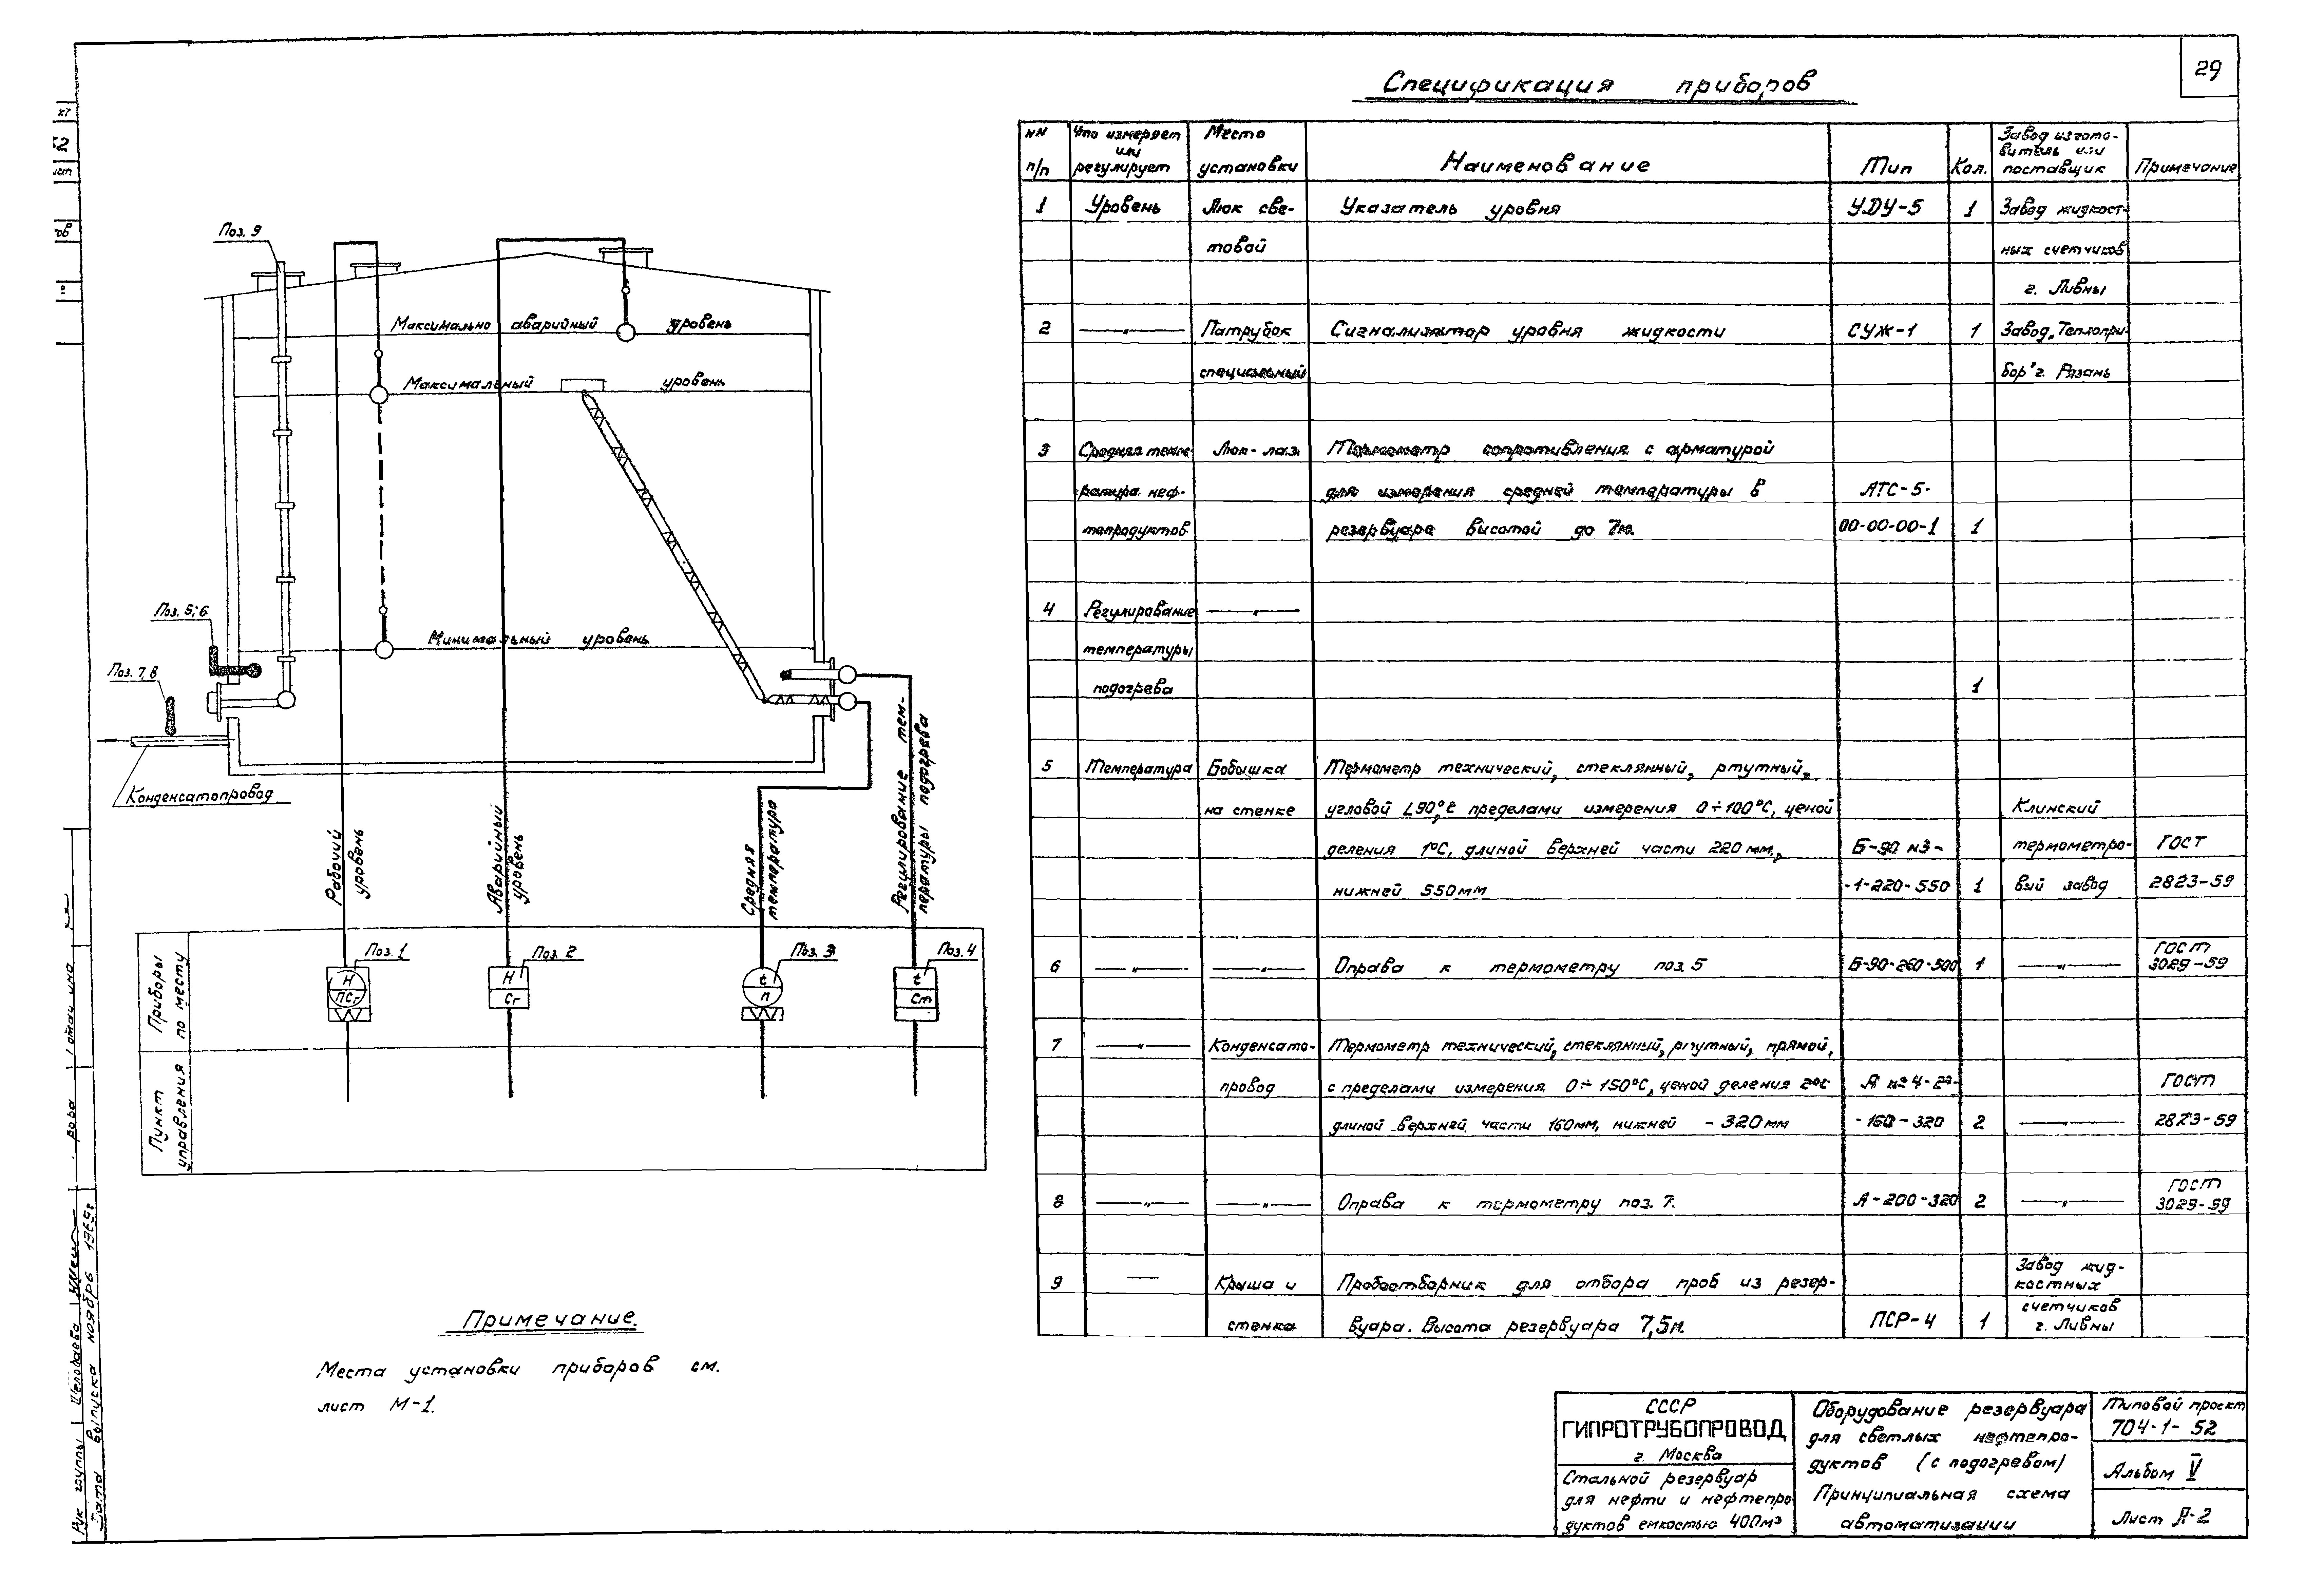 29
Спецификация приборов
NN п/п
Что измеряет или регулирует
Место установки
Наименование
Тип
Кол.
Завод изгото-витель или поставщик
Примечание
1 Уровень Люк све- Указатель уровня УДУ-5 1 Завод жидкост-
товой ных счетчиков
г. Ливны
2 —"— Патрубок Сигнализатор уровня жидкости СУЖ-1 1 Завод „Теплопри-
специальный бор" г. Рязань
3 Средняя темпе- Люк-лаз Термометр сопротивления с арматурой
ратура неф- для измерения средней температуры в АТС-5-
тепродуктов резервуаре высотой до 7м 00-00-00-1 1
4 Регулирование —"—
температуры
подогрева 1
5 Температура Бобышка Термометр технический, стеклянный, ртутный,
на стенке угловой L90°, с пределами измерения 0÷100°С, ценой Клинский
деления 1°С, длиной верхней части 220 мм, Б-90 №3- термометро- ГОСТ
нижней 550мм -1-220-550 1 вый завод 2823-59
6 —"— —"— Оправа к термометру поз. 5 Б-90-260-500 1 —"— ГОСТ 3029-59
7 —"— Конденсато- Термометр технический, стеклянный, ртутный, прямой,
провод с пределами измерения 0÷150°С, ценой деления 2°С А №4-2°- ГОСТ
длиной верхней части 160мм, нижней - 320мм -160-320 2 —"— 2823-59
8 —"— —"— Оправа к термометру поз. 7. А-200-320 2 —"— ГОСТ 3029-59
9 — Крыша и Пробоотборник для отбора проб из резер- Завод жид-костных
стенка вуара. Высота резервуара 7,5м. ПСР-4 1 счетчиков г. Ливны
Поз. 9
Максимально аварийный уровень
Максимальный уровень
Поз. 5; 6
Минимальный уровень
Поз. 7, 8
Конденсатопровод
Рабочий уровень
Аварийный уровень
Средняя температура
Регулирование тем-пературы подогрева
Приборы по месту
Поз. 1
Н
ПСг
Поз. 2
Н
Сг
Поз. 3
t
П
Поз. 4
t
Ст
Пункт управления
Примечание.
Места установки приборов см.
лист М-1.
СССР
ГИПРОТРУБОПРОВОД
г. Москва
Стальной резервуар
для нефти и нефтепро
дуктов емкостью 400м³
Оборудование резервуара
для светлых нефтепро-
дуктов (с подогревом)
Принципиальная схема
автоматизации
Типовой проект
704-1-52
Альбом V
Лист А-2
Рук группы
Дата выпуска ноябрь 1969г